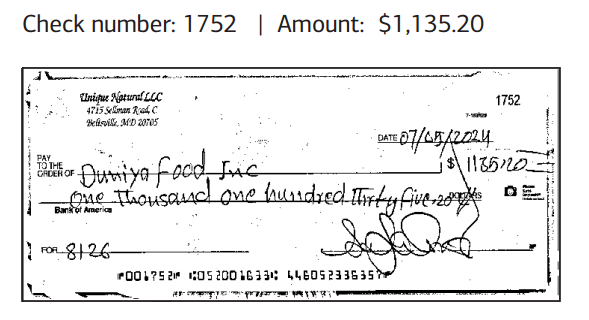 Check number: 1752 | Amount: $1,135.20
Unique Natural LLC
4715 Sellman Road, C
Beltsville, MD 20705
1752
DATE 07/05/2024
PAY
TO THE
ORDER OF Duniya Food Inc $ 1135.20
One Thousand one hundred Thirty five 20 DOLLARS
Bank of America
FOR 8126
⑈001752⑈ ⑆052001633⑆ 446052336357⑈